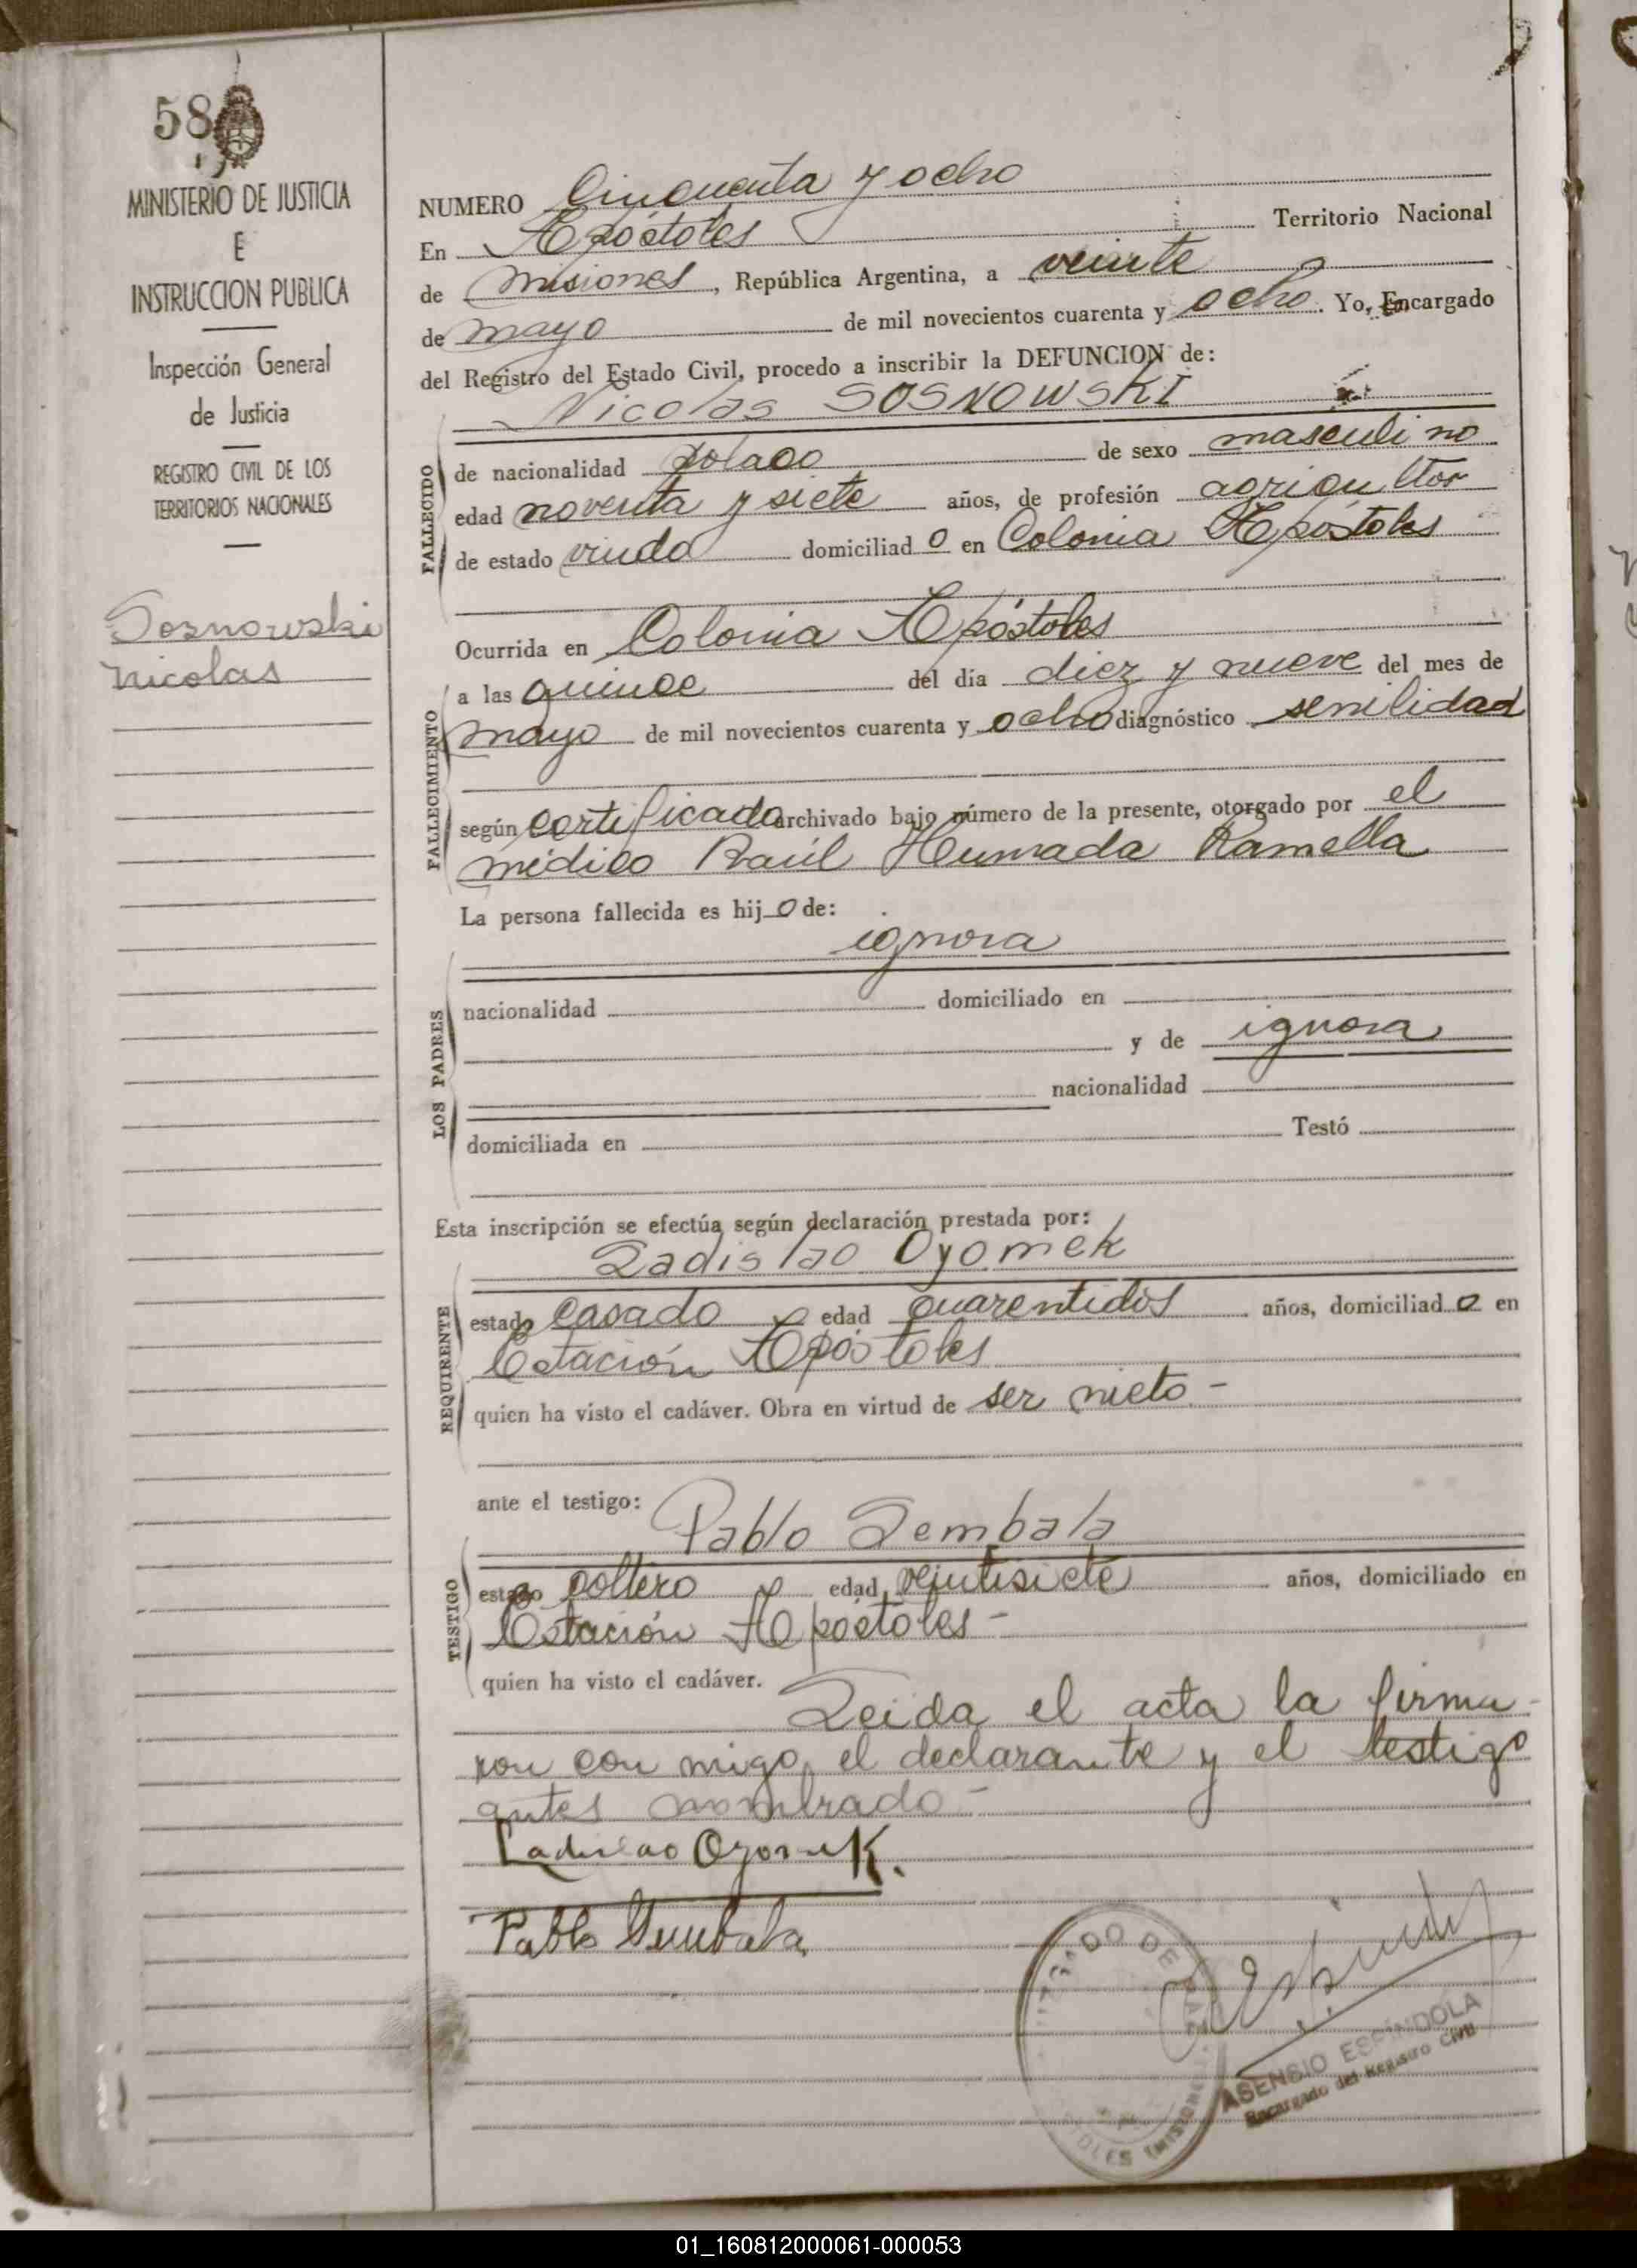 58
MINISTERIO DE JUSTICIA
E
INSTRUCCION PUBLICA
Inspección General
de Justicia
REGISTRO CIVIL DE LOS
TERRITORIOS NACIONALES
Sosnowski
Nicolas
NUMERO Cincuenta y ocho
En Apóstoles Territorio Nacional
de Misiones, República Argentina, a veinte
de mayo de mil novecientos cuarenta y ocho. Yo, Encargado
del Registro del Estado Civil, procedo a inscribir la DEFUNCION de:
Nicolas SOSNOWSKI
FALLECIDO
de nacionalidad polaco de sexo masculino
edad noventa y siete años, de profesión agricultor
de estado viudo domiciliado en Colonia Apóstoles
FALLECIMIENTO
Ocurrida en Colonia Apóstoles
a las quince del día diez y nueve del mes de
mayo de mil novecientos cuarenta y ocho diagnóstico senilidad
según certificado archivado bajo número de la presente, otorgado por el
médico Raúl Humada Ramella
LOS PADRES
La persona fallecida es hijo de:
ignora
nacionalidad domiciliado en
y de ignora
nacionalidad
domiciliada en Testó
Esta inscripción se efectúa según declaración prestada por:
Ladislao Oyomek
REQUIRENTE
estado casado edad cuarentidos años, domiciliado en
Estación Apóstoles
quien ha visto el cadáver. Obra en virtud de ser nieto -
ante el testigo:
Pablo Sembala
TESTIGO
estado soltero edad veintisiete años, domiciliado en
Estación Apóstoles -
quien ha visto el cadáver.
Leida el acta la firma-
ron con migo el declarante y el testigo
antes nombrado -
Ladislao Ozomek.
Pablo Sembala
JUZGADO DE PAZ
APOSTOLES (MISIONES)
ASENSIO ESPÍNDOLA
Encargado del Registro Civil
01_160812000061-000053